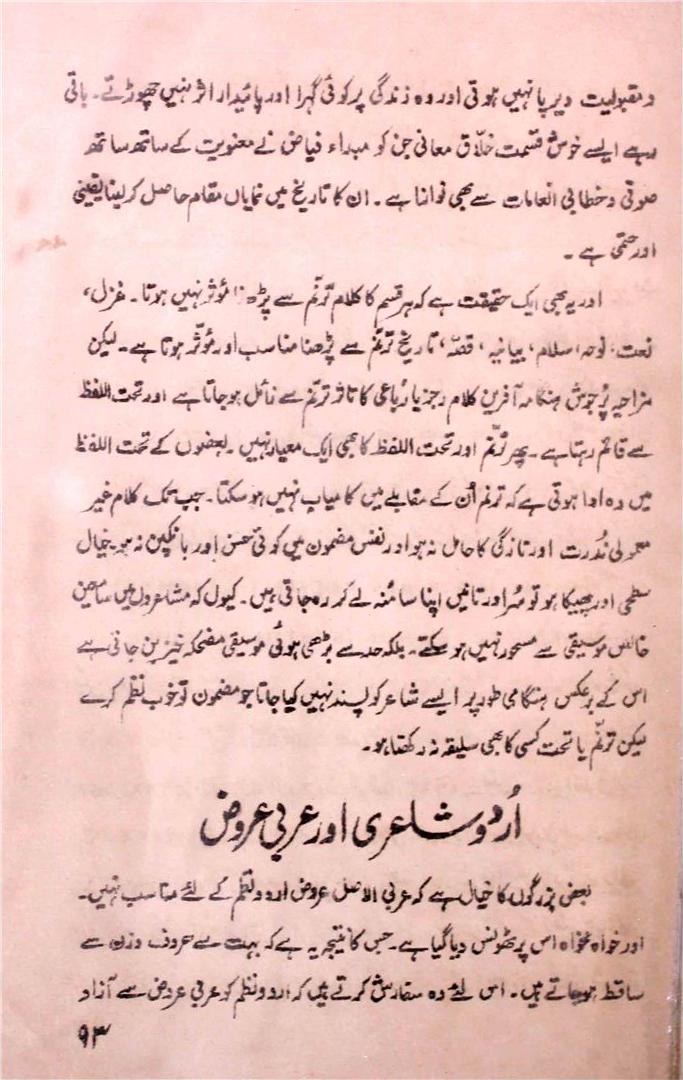 و مقبولیت دیرپا نہیں ہوتی اور وہ زندگی پر کوئی گہرا اور پائیدار اثر نہیں چھوڑتے۔ باقی
رہے ایسے خوش قسمت خلّاق معانی جن کو مبداء فیاض نے معنویت کے ساتھ ساتھ
صوتی و خطابی انعامات سے بھی نوازا ہے۔ ان کا تاریخ میں نمایاں مقام حاصل کر لینا یقینی
اور حتمی ہے۔
اور یہ بھی ایک حقیقت ہے کہ ہر قسم کا کلام ترنّم سے پڑھنا مؤثر نہیں ہوتا۔ غزل،
نعت، نوحہ، سلام، بیانیہ، قصّہ، تاریخ ترنّم سے پڑھنا مناسب اور مؤثّر ہوتا ہے۔ لیکن
مزاحیہ پُرجوش ہنگامہ آفرین کلام رجز یا رُباعی کا تاثر ترنّم سے زائل ہو جاتا ہے اور تحت اللفظ
سے قائم رہتا ہے۔ پھر ترنّم اور تحت اللفظ کا بھی ایک معیار نہیں۔ بعضوں کے تحت اللفظ
میں وہ ادا ہوتی ہے کہ ترنم اُن کے مقابلے میں کامیاب نہیں ہو سکتا۔ جب تک کلام غیر
معمولی نُدرت اور تازگی کا حامل نہ ہو اور نفس مضمون میں کوئی حسن اور بانکپن نہ ہو خیال
سطحی اور پھیکا ہو تو سُر اور تانیں اپنا سا مُنہ لے کر رہ جاتی ہیں۔ کیوں کہ مشاعروں میں سامعین
خالص موسیقی سے مسحور نہیں ہو سکتے۔ بلکہ حد سے بڑھی ہوئی موسیقی مضحکہ خیز بن جاتی ہے
اس کے برعکس ہنگامی طور پر ایسے شاعر کو پسند نہیں کیا جاتا جو مضمون تو خوب نظم کرے
لیکن ترنّم یا تحت کسی کا بھی سلیقہ نہ رکھتا ہو۔
اُردو شاعری اور عربی عروض
بعض بزرگوں کا خیال ہے کہ عربی الاصل عروض اردو نظم کے لئے مناسب نہیں۔
اور خواہ مخواہ اس پر ٹھونس دیا گیا ہے۔ جس کا نتیجہ یہ ہے کہ بہت سے حروف وزن سے
ساقط ہو جاتے ہیں۔ اس لئے وہ سفارش کرتے ہیں کہ اردو نظم کو عربی عروض سے آزاد
۹۳